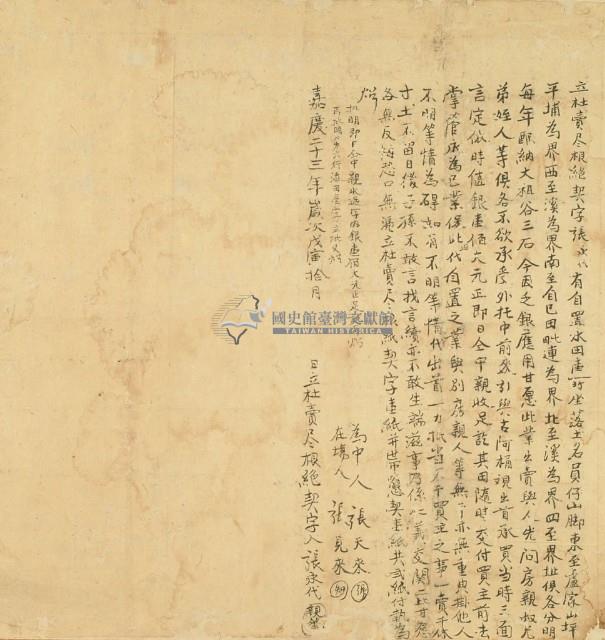 立杜賣尽根絕契字張永代有自置水田壹叚坐落土名員仔山脚東至盧家山坪
平埔為界西至溪為界南至自己田毗連為界北至溪為界四至界址俱各分明
每年配納大租谷三石今因乏銀應用甘愿此業出賣與人先問房親叔兄
弟姪人等俱各不欲承受外托中前來引與古阿桶視出首承買當時三面
言定依時值銀壹佰六元正即日全中親收足訖其田隨時交付買主前去
掌管永為己業保此代自置之業與別房親人等無干亦無重典掛他人
不明等情為碍如有不明等情代出首一力抵當不干買主之事一賣千休
寸土不留日後子孫不敢言找言續亦不敢生端滋事乃係仁義交關二比甘愿
各無反悔恐口無憑立杜賣尽根絕契字壹紙并帶繳契壹紙共弍紙付執為
炤
批明即日全中親收過字內銀壹佰六元正足訖炤
嘉慶二十三年歲次戊寅拾月 日立杜賣尽根絕契字人張永代
為中人 張天來
在場人 張見來
國史館臺灣文獻館
TAIWAN HISTORICA